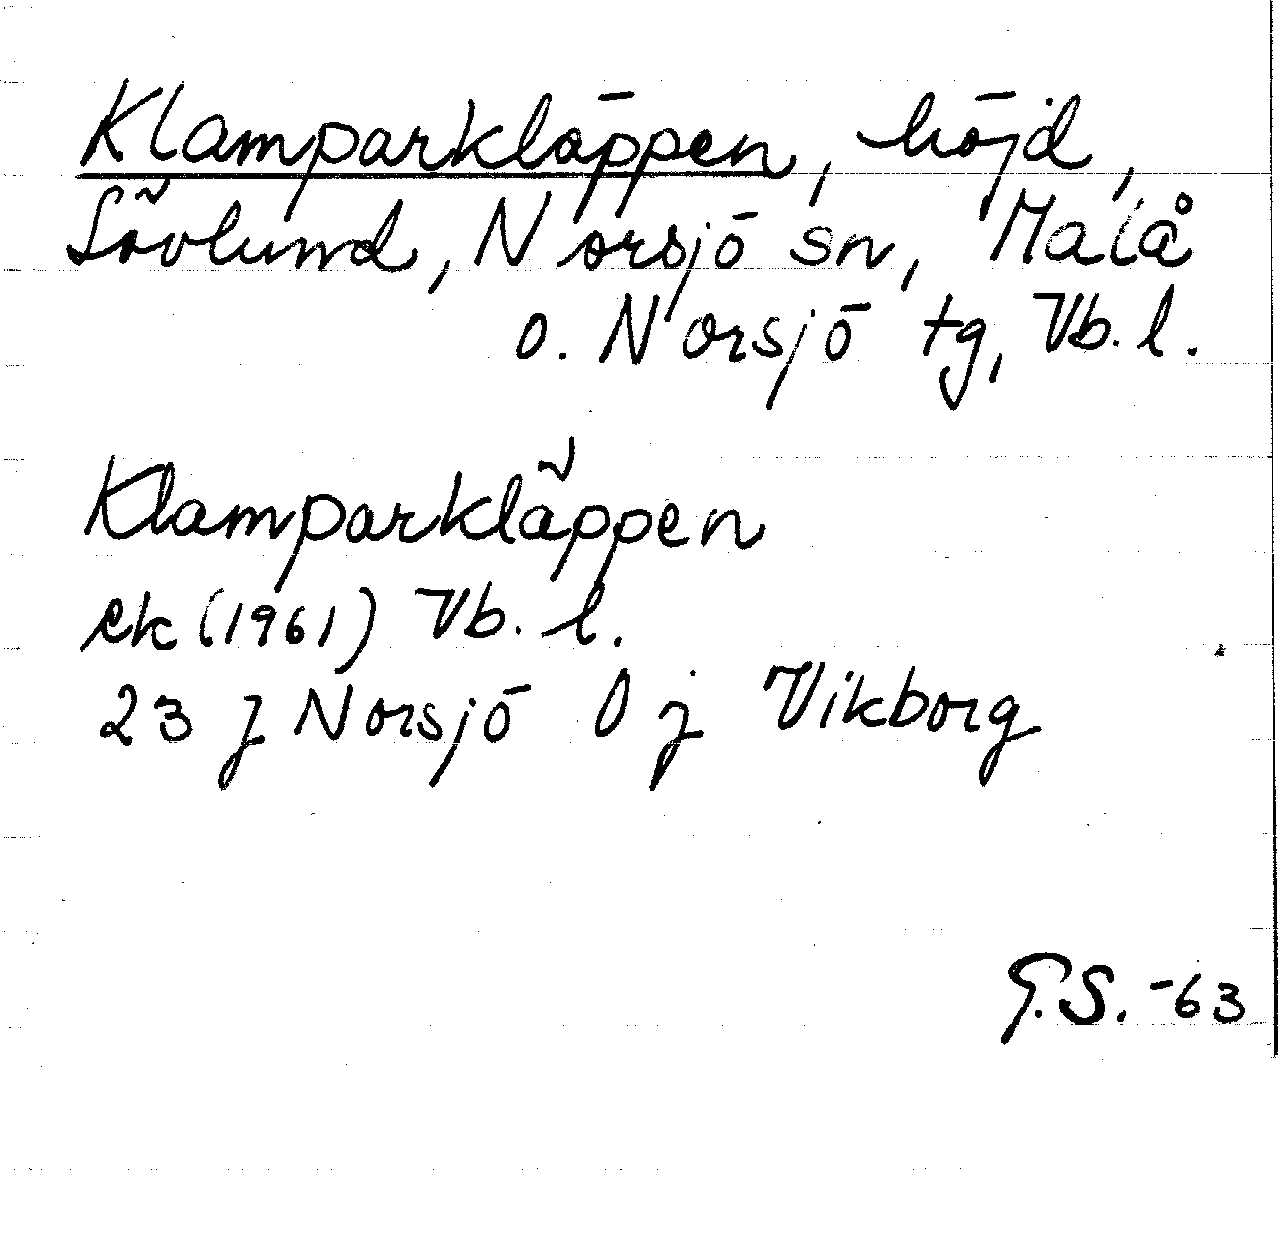 Klamparkläppen, höjd,
Lövlund, Norsjö sn, Malå
o. Norsjö tg, Vb. l.
Klamparkläppen
ek (1961) Vb. l.
23 J Norsjö 0 j Vikborg
G.S. -63